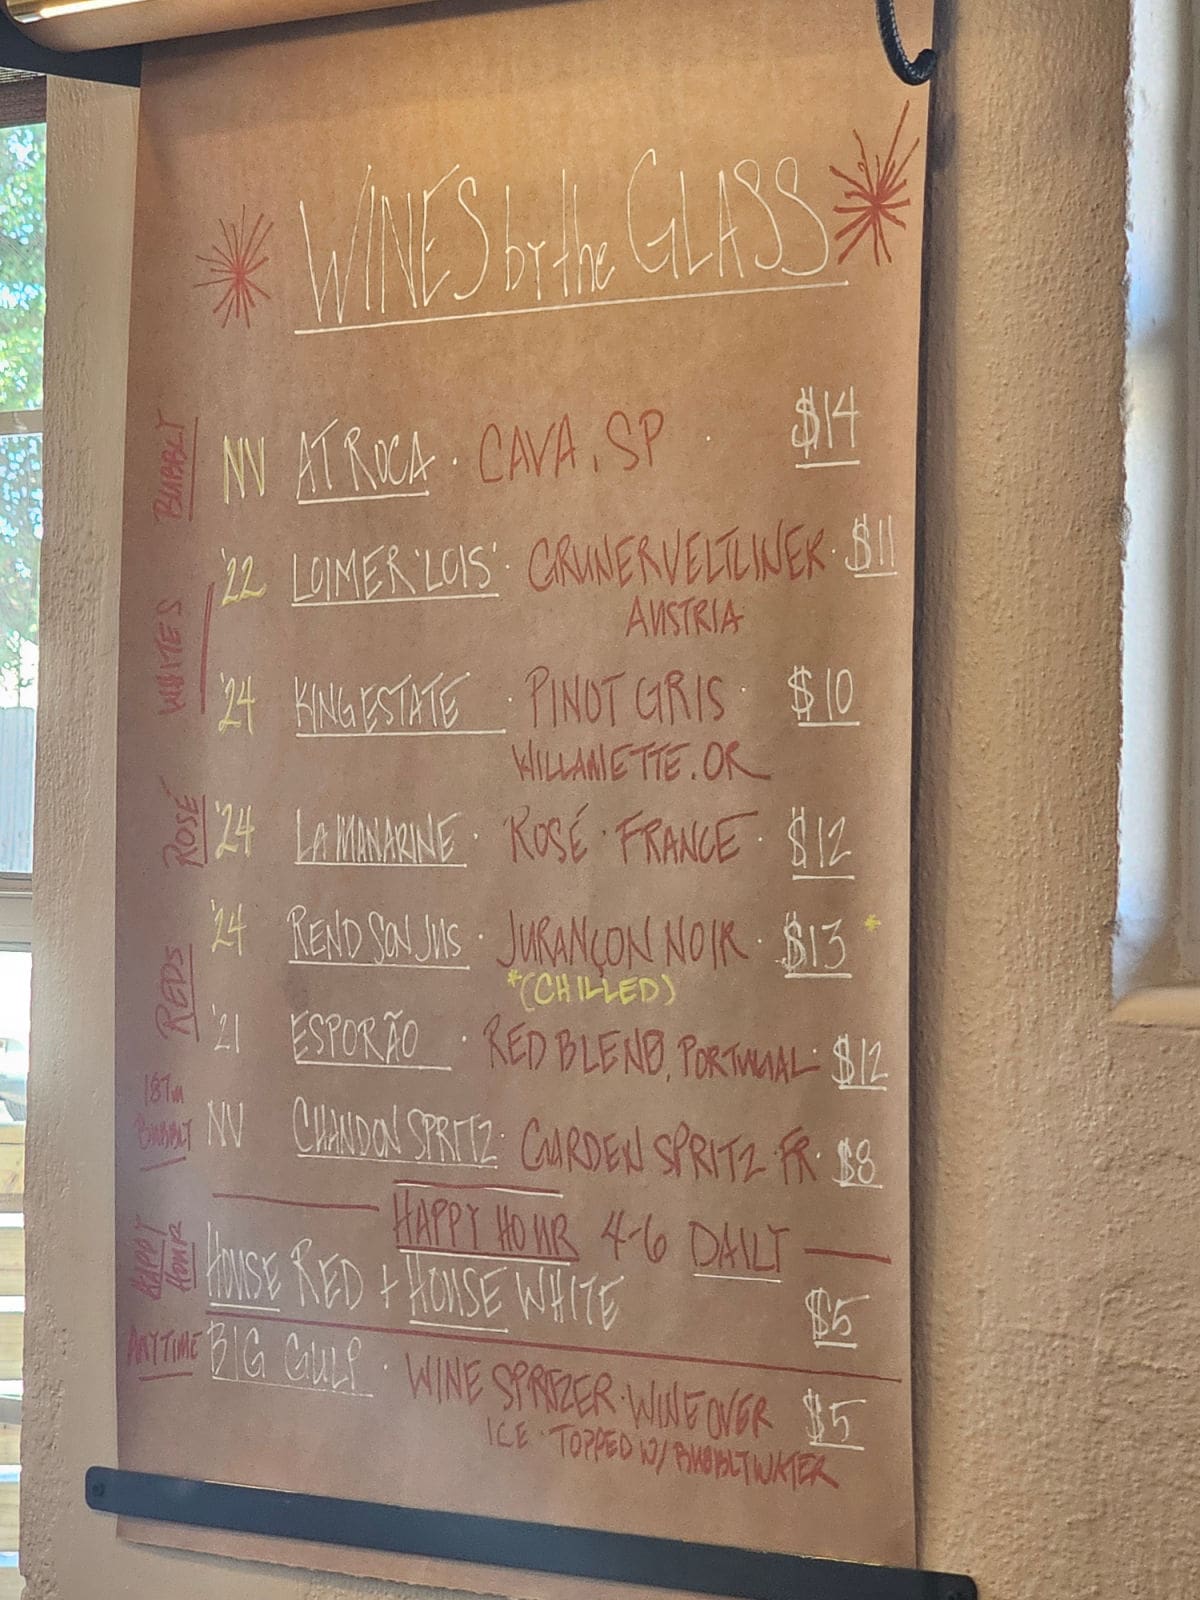 WINES by the GLASS
BUBBLY NV AT ROCA · CAVA, SP · $14
WHITES '22 LOIMER 'LOIS' · GRUNER VELTLINER · $11
AUSTRIA
'24 KING ESTATE · PINOT GRIS · $10
WILLAMETTE, OR
ROSÉ '24 LA MANARINE · ROSÉ · FRANCE · $12
REDS '24 REND SON JUS · JURANÇON NOIR · $13 *
*(CHILLED)
'21 ESPORÃO · RED BLEND, PORTUGAL · $12
187m BUBBLY NV CHANDON SPRITZ · GARDEN SPRITZ · FR · $8
HAPPY HOUR 4-6 DAILY
HAPPY HOUR HOUSE RED + HOUSE WHITE $5
ANYTIME BIG GULP · WINE SPRITZER · WINE OVER $5
ICE · TOPPED W/ BUBBLY WATER